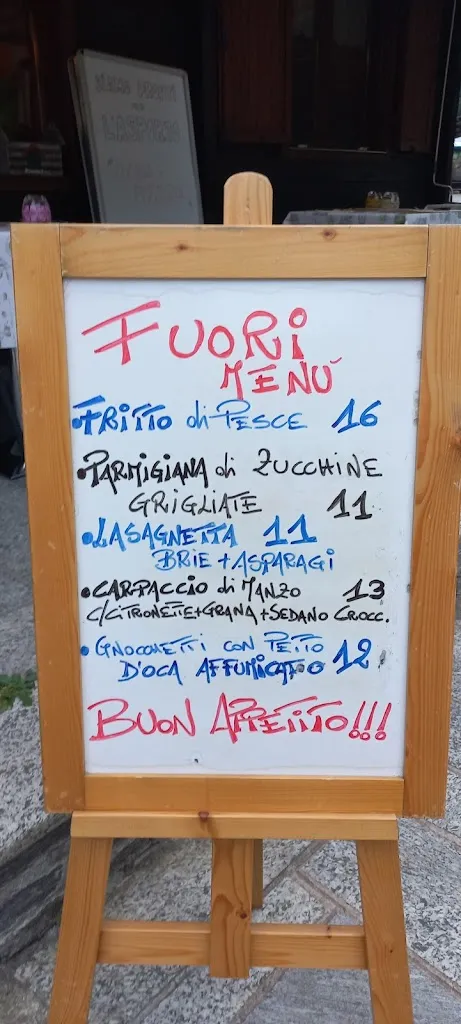 FUORI
MENÚ
•FRITTO di PESCE 16
•PARMIGIANA di ZUCCHINE
GRIGLIATE 11
•LASAGNETTA 11
BRIE + ASPARAGI
•CARPACCIO di MANZO 13
C/CITRONETTE+GRANA+SEDANO CROCC.
•GNOCCHETTI CON PETTO
D'OCA AFFUMICATO 12
BUON APPETITO!!!